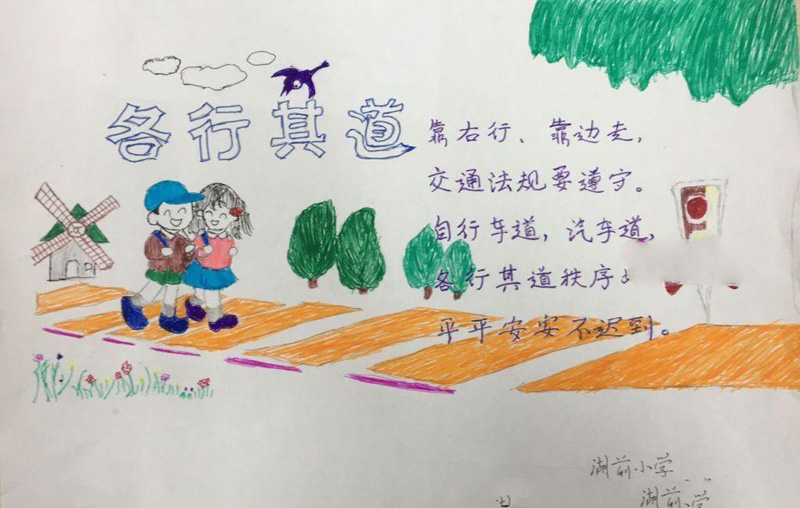 各行其道
靠右行、靠边走，
交通法规要遵守。
自行车道，汽车道，
各行其道秩序
平平安安不迟到。
湖前小学
湖前小学